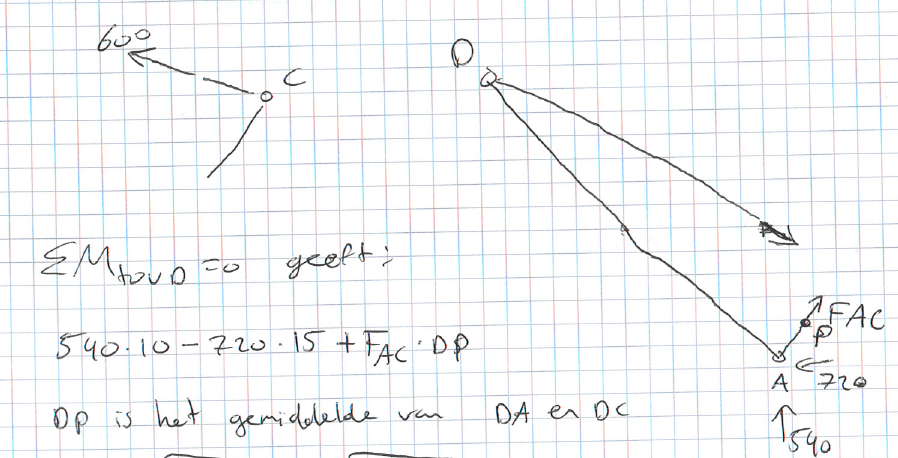 600
C
D
ΣM tov D = 0 geeft:
540·10 - 720·15 + F_AC · DP
DP is het gemiddelde van DA en DC
FAC
P
A
720
540